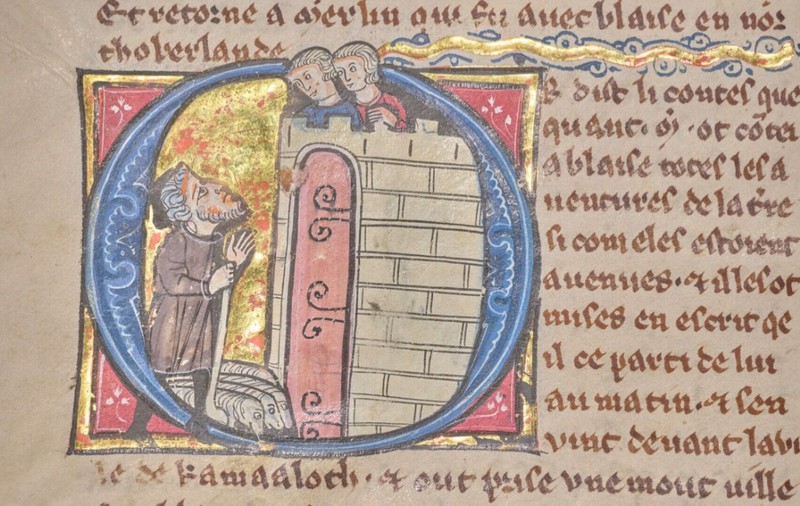 Et retorne a Merlin qui fu avec blaise en nor
thoberlande
R dist li contes que
quant · oȷ̃ · ot cõte
a blaise totes les a
uentures de la tr̃e
si com eles estoient
auenues · ⁊ il les ot
mises en escrit qe
il ce parti de lui
au matin · ⁊ sen
vint deuant la vi
le de kamaaloth · ⁊ out prise vne mout uille